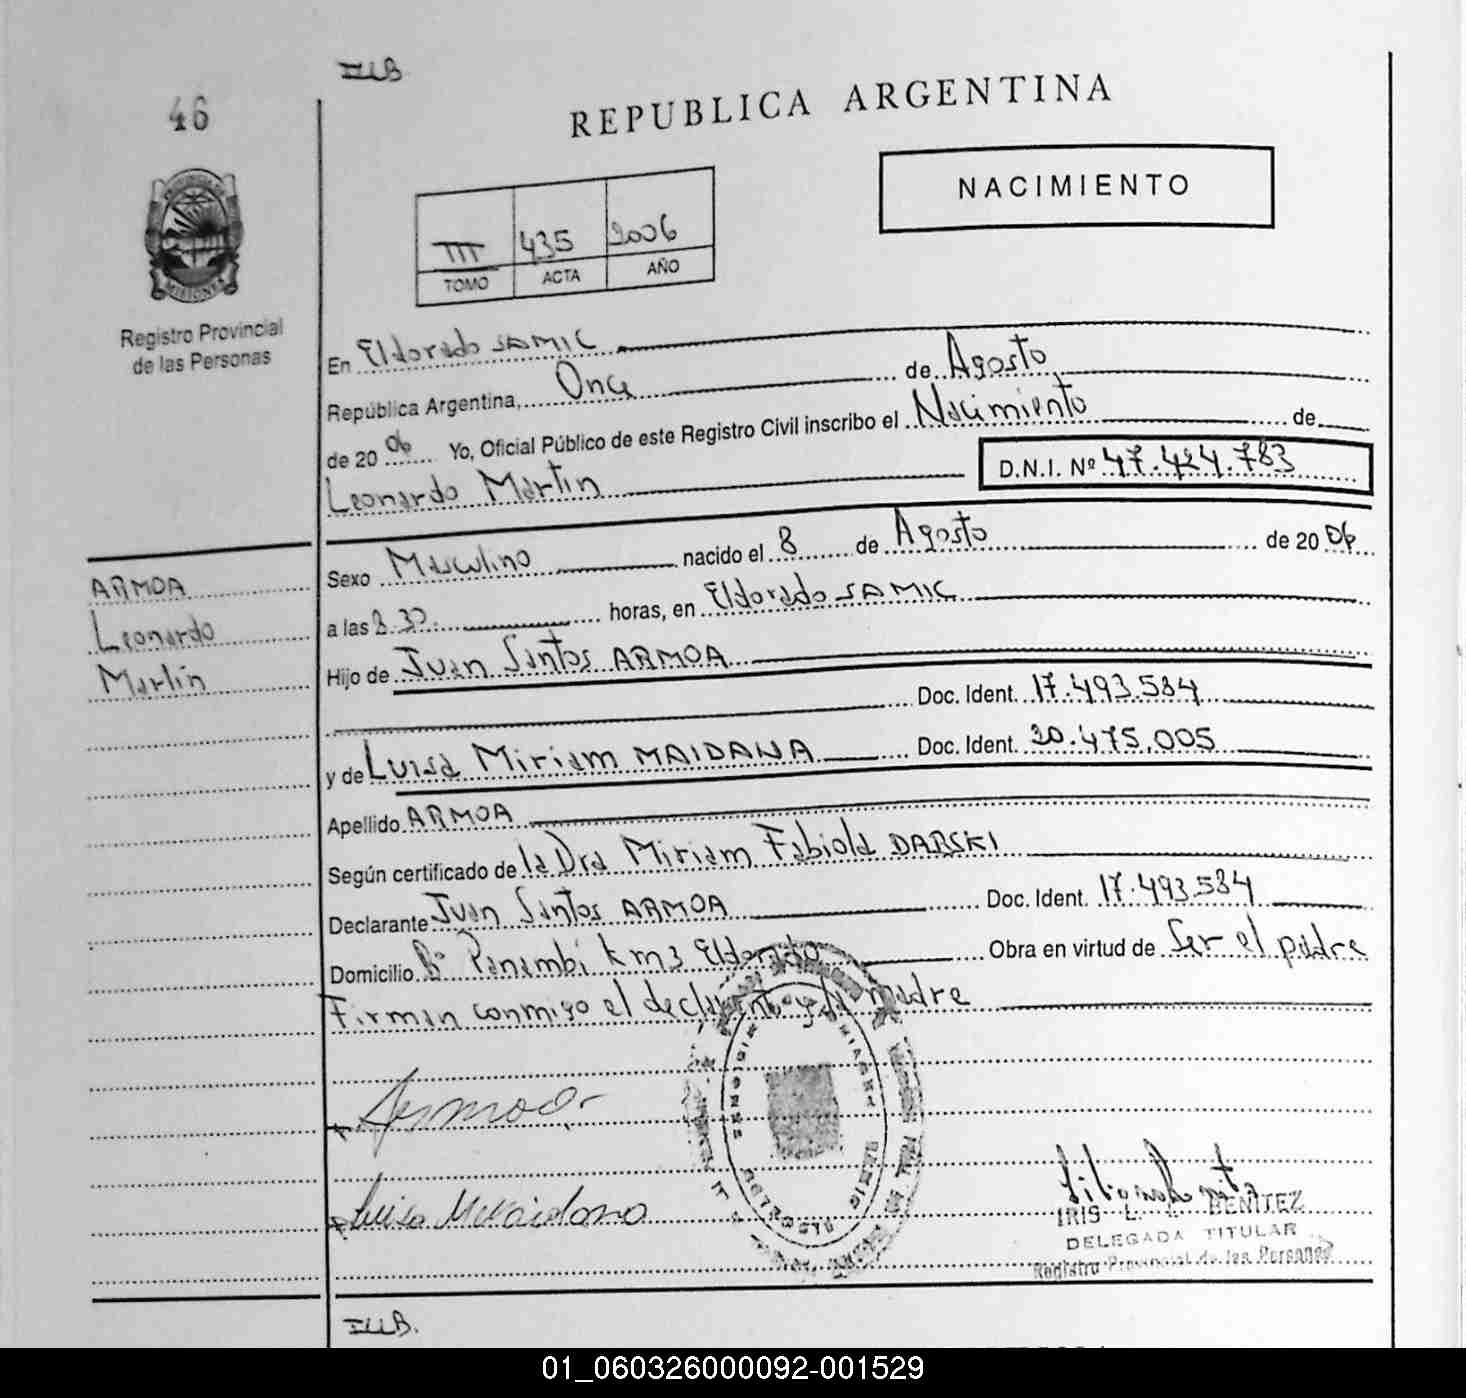 ILLB
46
REPUBLICA ARGENTINA
NACIMIENTO
III 435 2006
TOMO ACTA AÑO
MISIONES
Registro Provincial
de las Personas
En Eldorado SAMIC
República Argentina, Once de Agosto
de 20 06 Yo, Oficial Público de este Registro Civil inscribo el Nacimiento de
Leonardo Martin D.N.I. Nº 47.424.783
ARMOA
Leonardo
Martin
Sexo Masculino nacido el 8 de Agosto de 20 06
a las 8.30. horas, en Eldorado SAMIC
Hijo de Juan Santos ARMOA
Doc. Ident. 17.493.584
y de Luisa Miriam MAIDANA Doc. Ident. 20.475.005
Apellido ARMOA
Según certificado de la Dra Miriam Fabiola DARSKI
Declarante Juan Santos ARMOA Doc. Ident. 17.493.584
Domicilio Bº Panambí km3 Eldorado Obra en virtud de Ser el padre
Firman conmigo el declarante y la madre
Armoa
Luisa M Maidana
IRIS L. BENITEZ
DELEGADA TITULAR
Registro Provincial de las Personas
ILLB.
01_060326000092-001529